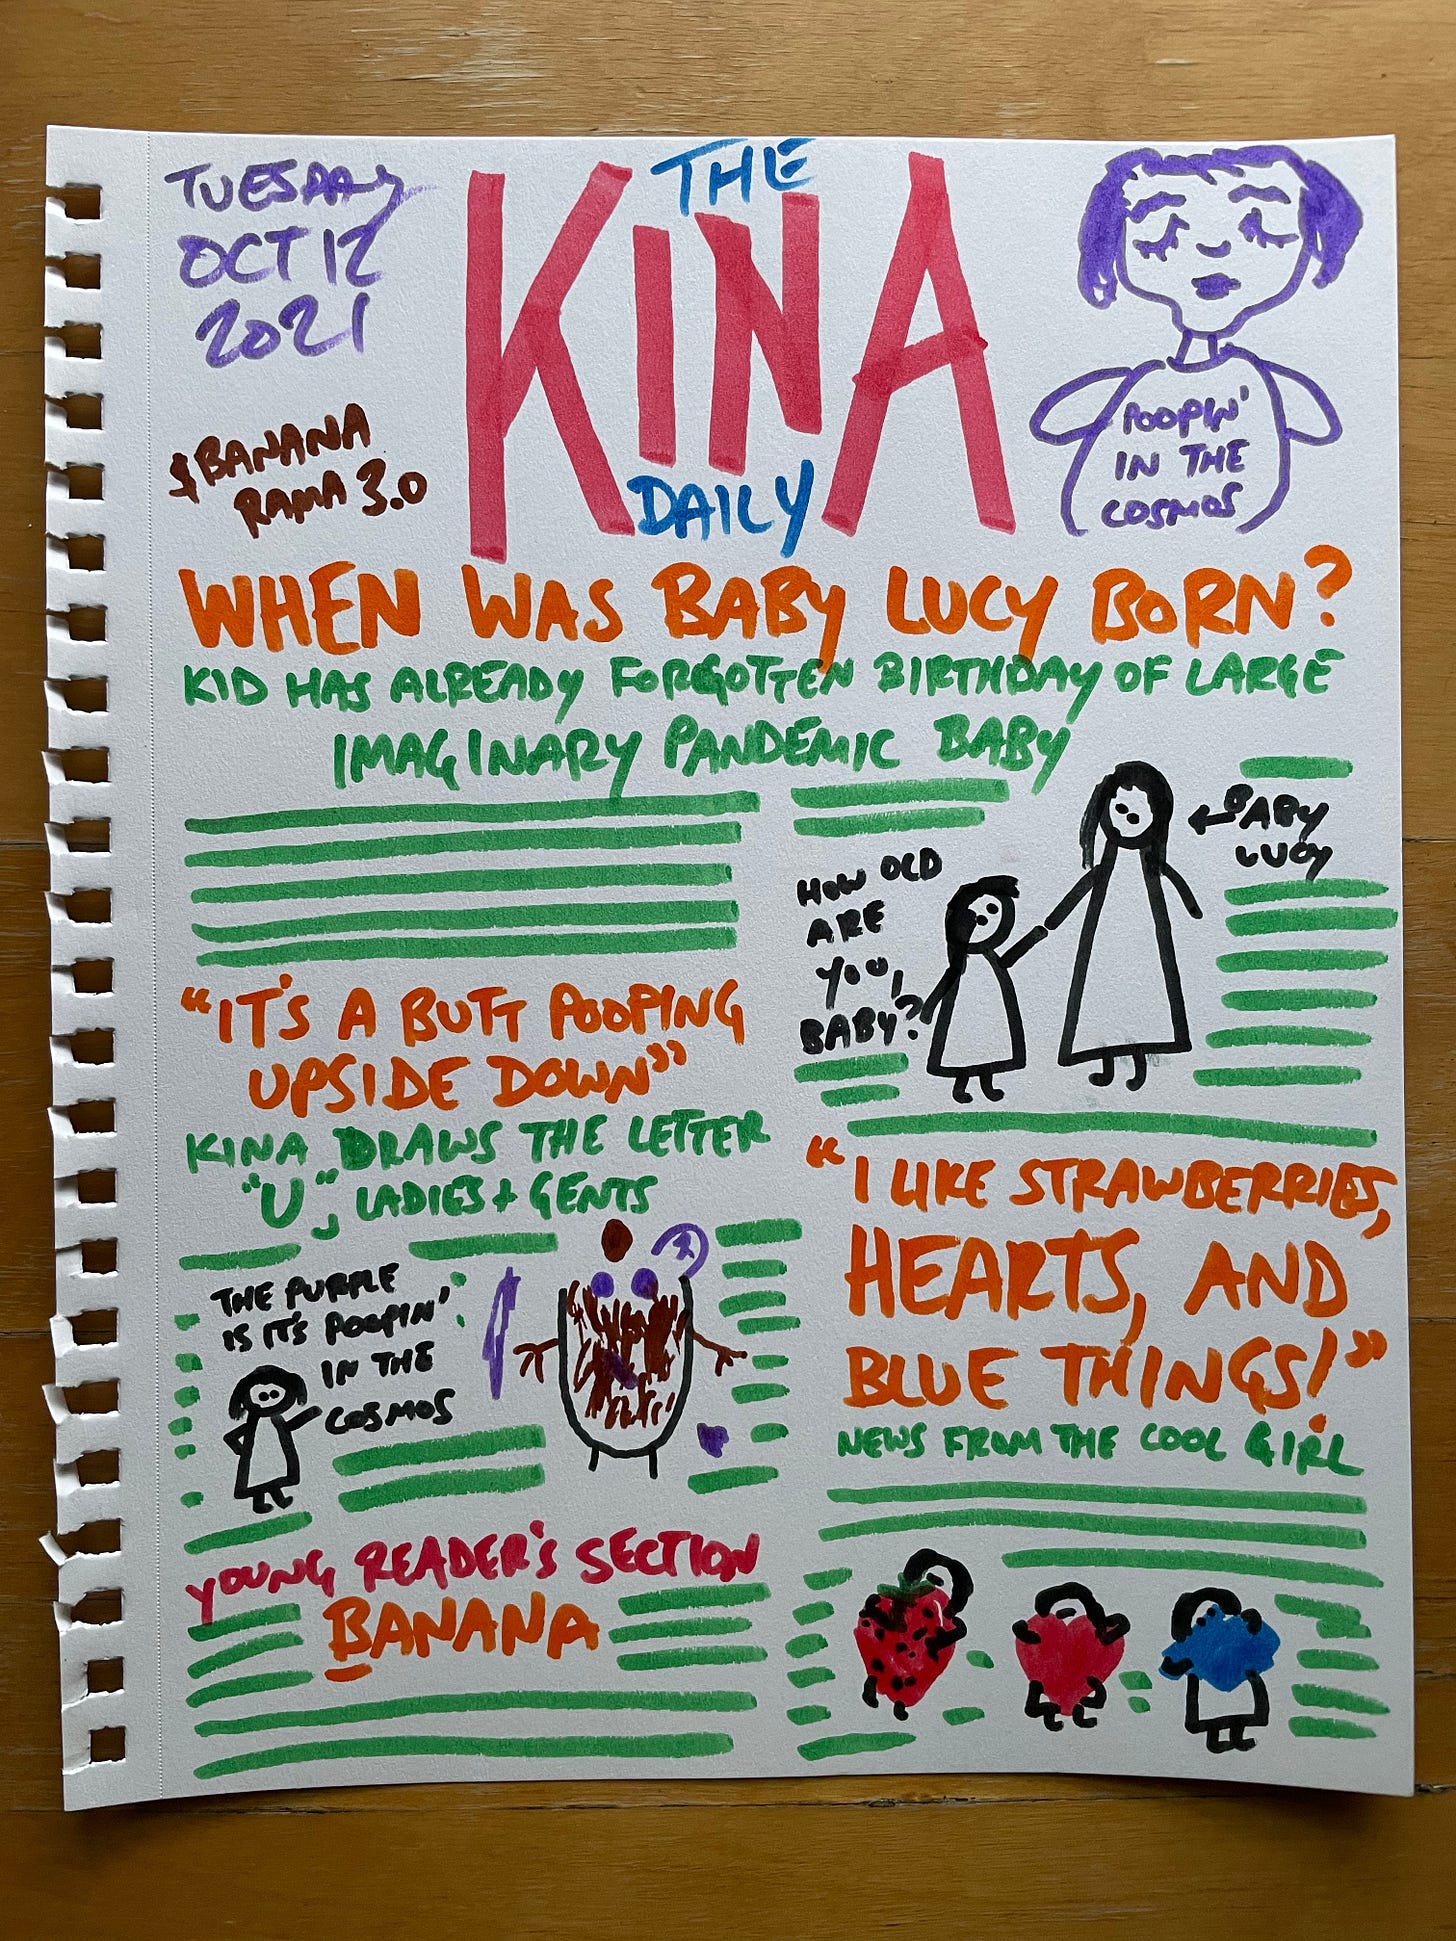 TUESDAY
OCT 12
2021
THE
KINA
DAILY
$BANANA
RAMA 3.0
POOPIN'
IN THE
COSMOS
WHEN WAS BABY LUCY BORN?
KID HAS ALREADY FORGOTTEN BIRTHDAY OF LARGE
IMAGINARY PANDEMIC BABY
HOW OLD
ARE
YOU,
BABY?
←BABY
LUCY
"IT'S A BUTT POOPING
UPSIDE DOWN"
KINA DRAWS THE LETTER
"U", LADIES + GENTS
THE PURPLE
IS IT'S POOPIN'
IN THE
COSMOS
"I LIKE STRAWBERRIES,
HEARTS, AND
BLUE THINGS!"
NEWS FROM THE COOL GIRL
YOUNG READER'S SECTION
BANANA